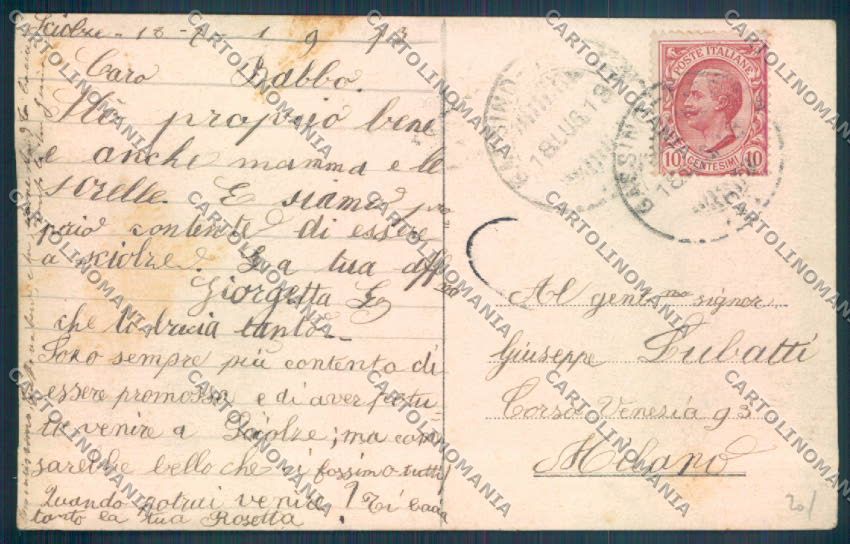 Sciolze - 18-7-1913
Caro Babbo.
Sto proprio bene
e anche mamma e le
sorelle. E siamo pro
prio contente di essere
a sciolze. La tua aff
Giorgetta
che ti bacia tanto
Sono sempre più contenta di
essere promossa e di aver potu-
to venire a Sciolze; ma com
sarebbe bello che ci fossimo tutti
Quando potrai venire? Ti bacia
tanto la tua Rosetta
POSTE ITALIANE
10 CENTESIMI 10
GASSINO
18 LUG 13
GASSINO
18
Al gentmo signor
Giuseppe Lubatti
Corso Venezia 93
Milano
20/
CARTOLINOMANIA